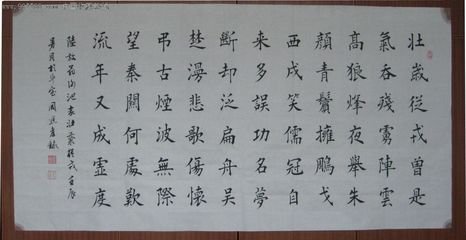 壯歲從戎曾是
氣吞殘虜陣雲
高狼烽夜舉朱
顏青鬢擁鵰戈
西戍笑儒冠自
來多誤功名夢
斷却泛扁舟吳
楚漫悲歌傷懷
弔古煙波無際
望秦關何處歎
流年又成虛度
陸放翁謝池春壯歲從戎壬辰
夏月於